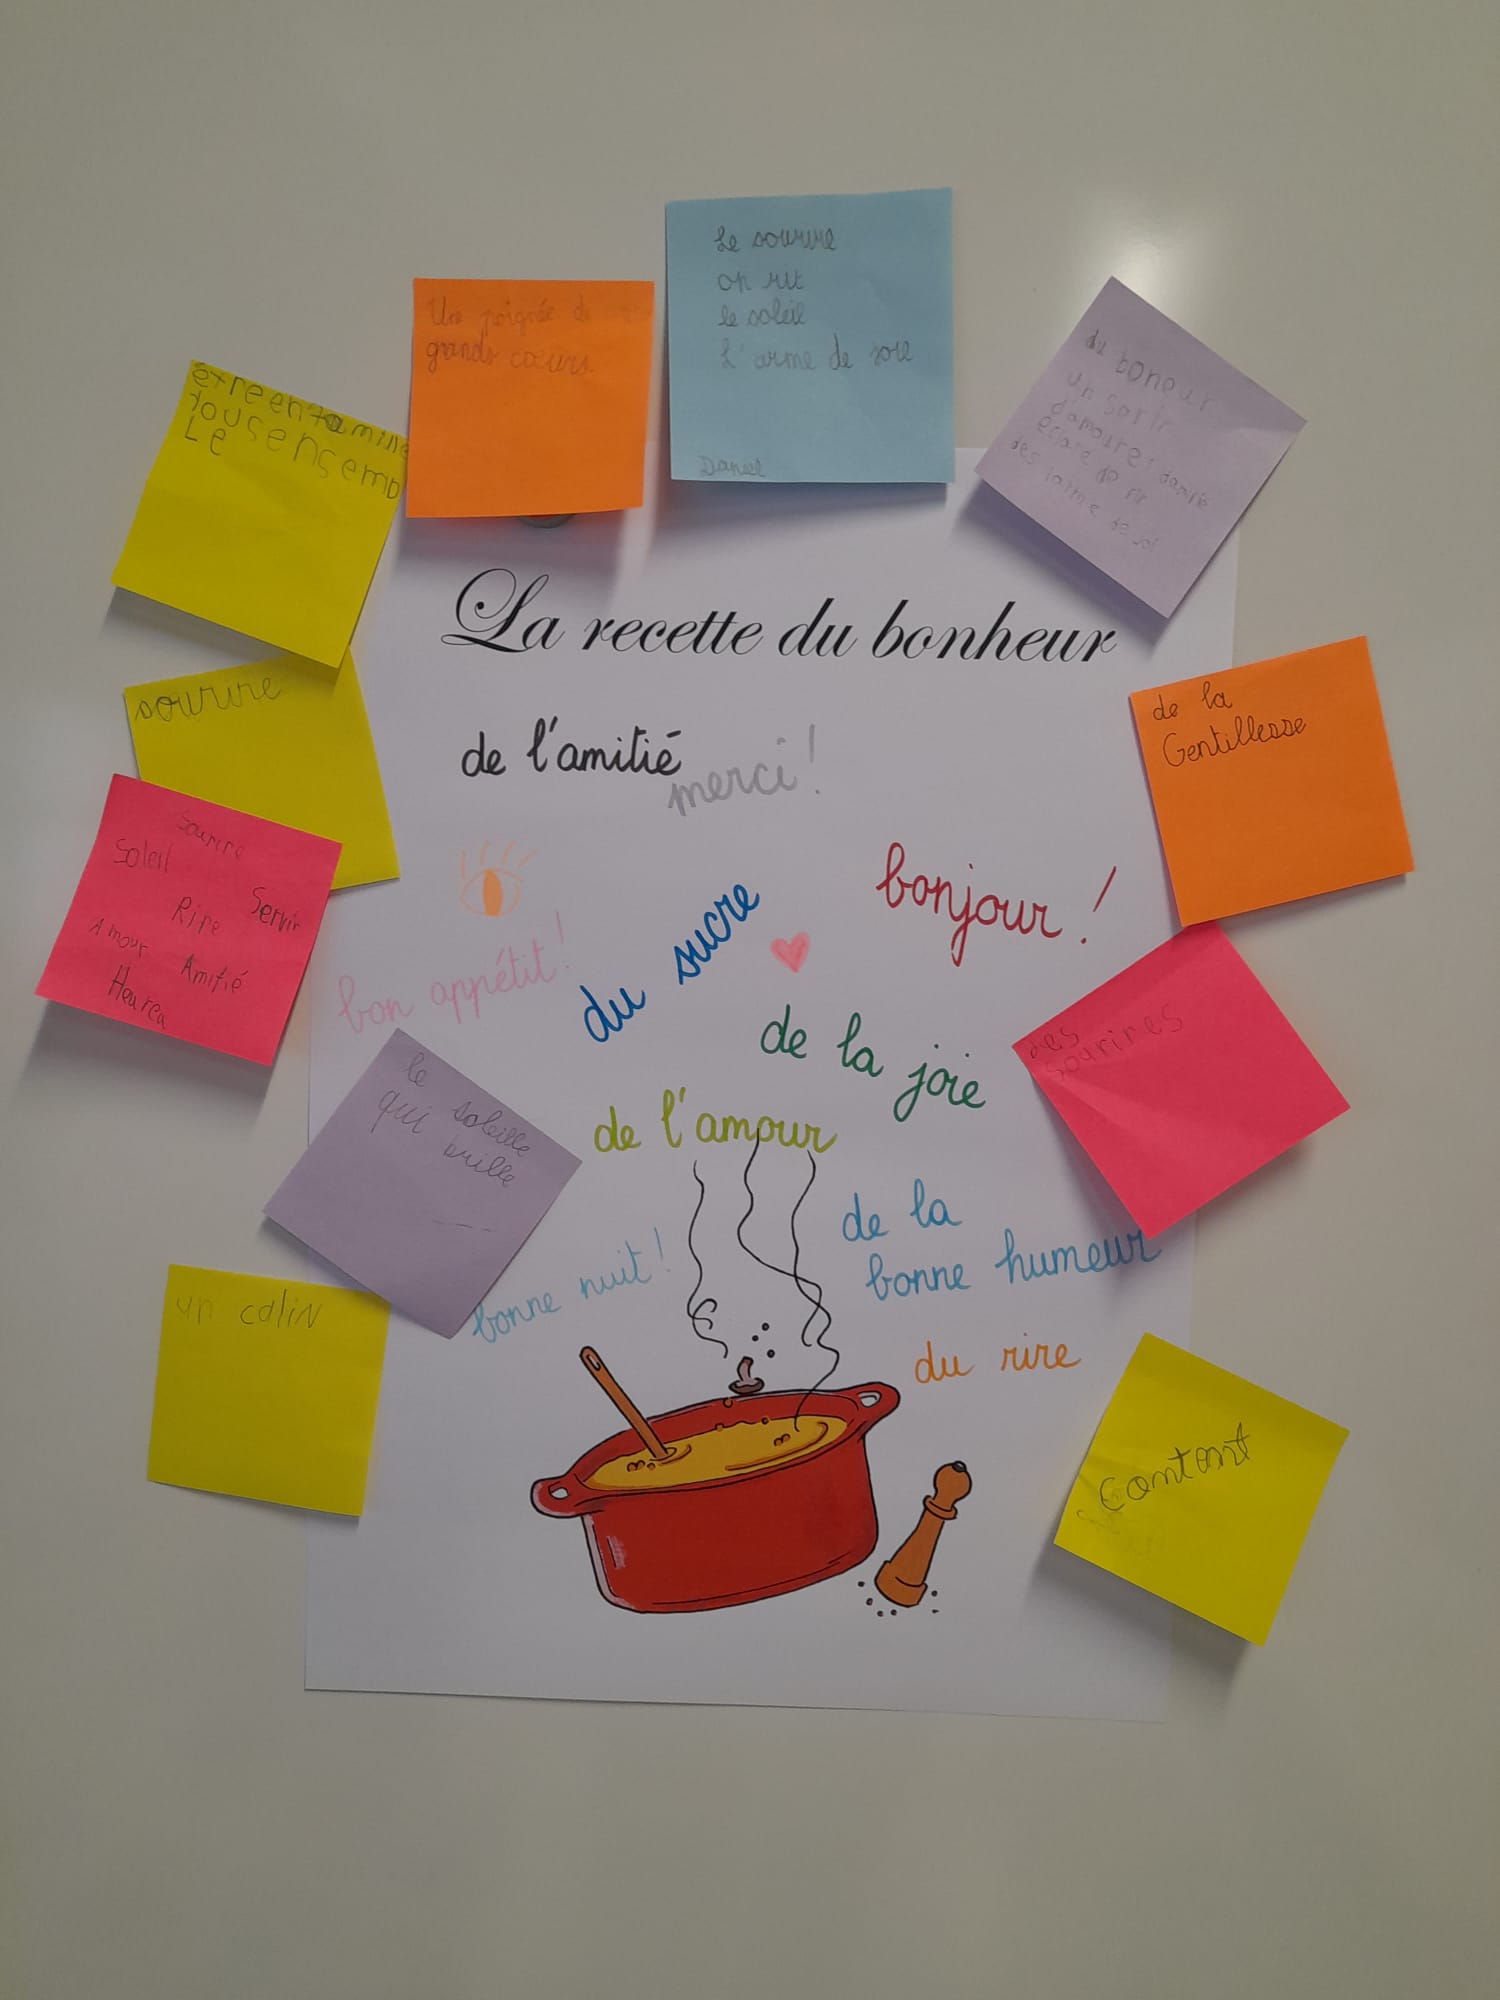 Le sourire
on rit
le soleil
L'arme de joie
Daniel
Une poignée de
grands cœurs.
du boneur
un sorir
d'amour et damitié
éclare de rir
des larme de joi
etre en famille
tous ensemb
Le
La recette du bonheur
sourire
de l'amitié
merci !
de la
Gentillesse
Sourire
Soleil
Servir
Rire
Amour
Amitié
Heureu
bonjour !
du sucre
bon appétit !
des
sourires
de la joie
le soleille
qui brille
de l'amour
de la
bonne humeur
bonne nuit !
un calin
du rire
contont